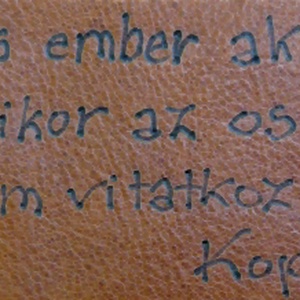 ember ak
ikor az os
m vitatkoz
Kop